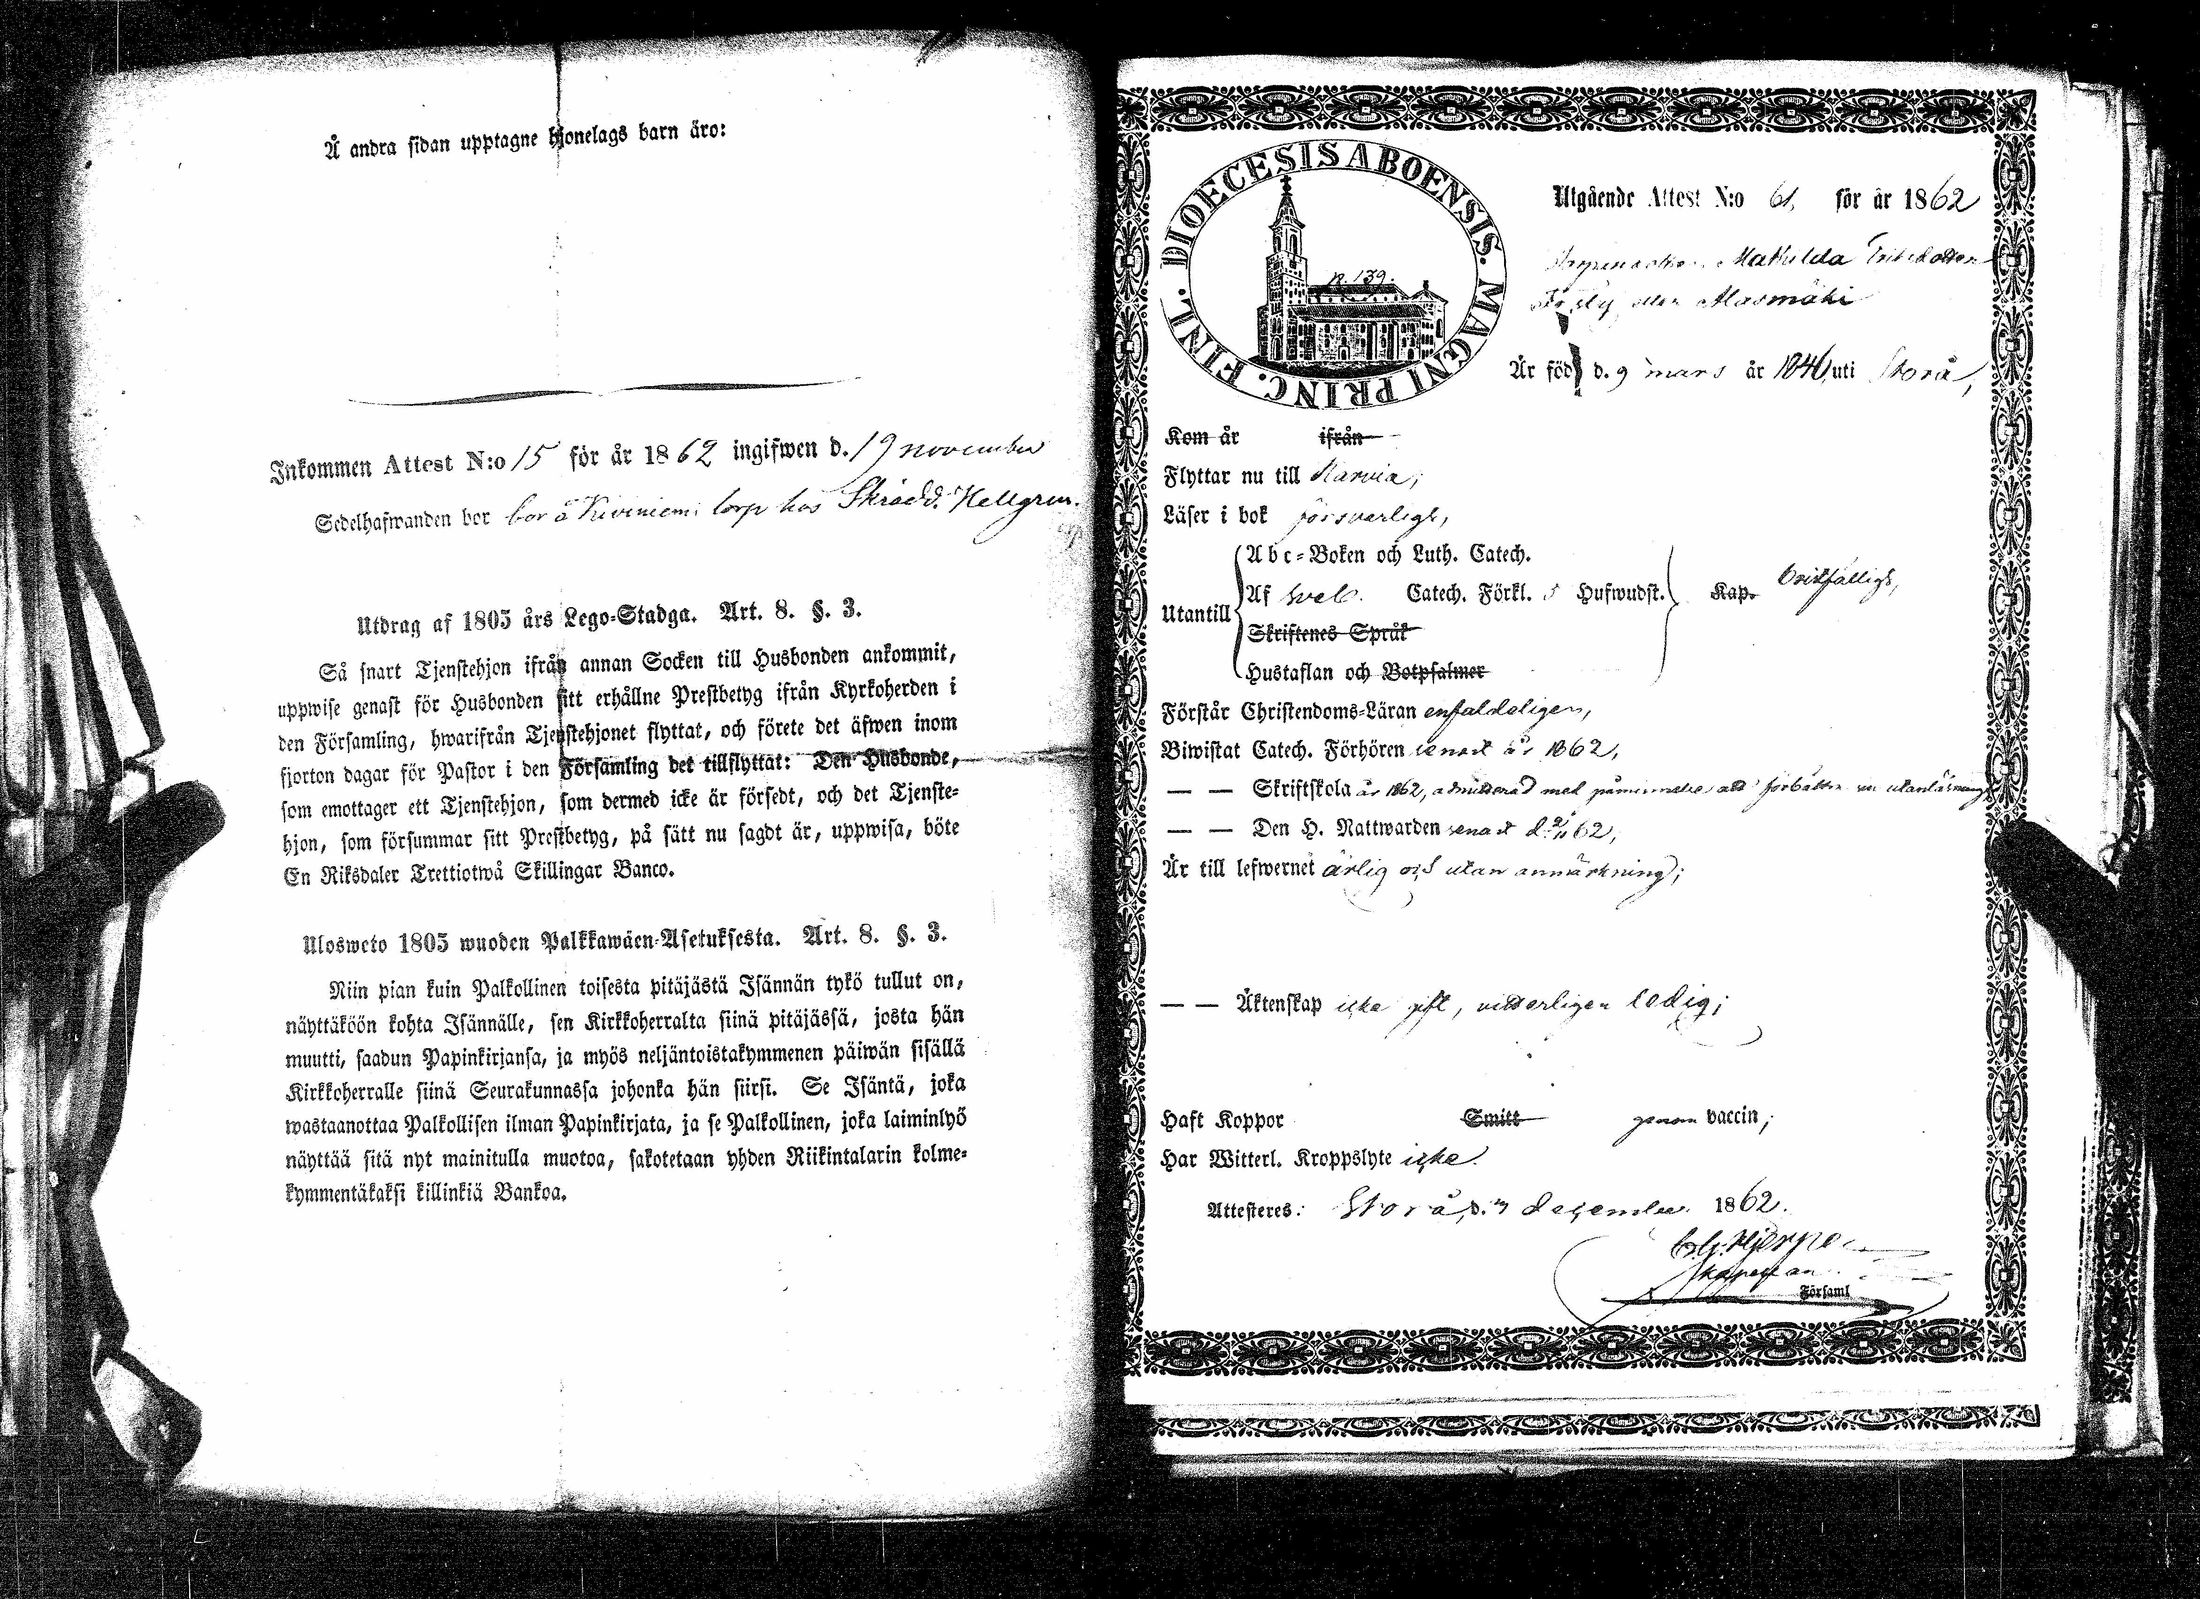 Å andra sidan upptagne hjonelags barn äro:
Inkommen Attest N:o 15 för år 1862 ingifwen d. 19 november
Sedelhafwanden bor bor å Kiviniemi torp hos Skrädd. Hellgren.
Utdrag af 1805 års Lego-Stadga. Art. 8. §. 3.
Så snart Tjenstehjon ifrån annan Socken till Husbonden ankommit,
uppwise genast för Husbonden sitt erhållne Prestbetyg ifrån Kyrkoherden i
den Församling, hwarifrån Tjenstehjonet flyttat, och förete det äfwen inom
fjorton dagar för Pastor i den Församling det tillflyttat: Den Husbonde,
som emottager ett Tjenstehjon, som dermed icke är försedt, och det Tjenste-
hjon, som försummar sitt Prestbetyg, på sätt nu sagdt är, uppwisa, böte
En Riksdaler Trettiotwå Skillingar Banco.
Ulosweto 1805 wuoden Palkkawäen-Asetuksesta. Art. 8. §. 3.
Niin pian kuin Palkollinen toisesta pitäjästä Isännän tykö tullut on,
näyttäköön kohta Isännälle, sen Kirkkoherralta siinä pitäjässä, josta hän
muutti, saadun Papinkirjansa, ja myös neljäntoistakymmenen päiwän sisällä
Kirkkoherralle siinä Seurakunnassa johonka hän siirsi. Se Isäntä, joka
wastaanottaa Palkollisen ilman Papinkirjata, ja se Palkollinen, joka laiminlyö
näyttää sitä nyt mainitulla muotoa, sakotetaan yhden Riikintalarin kolme-
kymmentäkaksi killinkiä Bankoa.
DIOECESIS ABOENSIS. MAGNI PRINC. FINL.
n. 139.
Utgående Attest N:o 61, för år 1862
Mathilda
Masmäki
Är föd d. 9 mars år 1846 uti Storå,
Kom år ifrån
Flyttar nu till Karvia;
Läser i bok försvarligt,
Utantill
Abc-Boken och Luth. Catech.
Af Sveb. Catech. Förkl. 5 Hufwudst. Kap. bristfälligt,
Skriftenes Språk
Hustaflan och Botpsalmer
Förstår Christendoms-Läran enfaldeligen,
Biwistat Catech. Förhören senast år 1862,
— — Skriftskola år 1862, admitterad med påminnelse att förbättra sin utanläsning
— — Den H. Nattwarden senast d. 2/11 62,
Är till lefwernet ärlig och utan anmärkning;
— — Äktenskap icke gift, vitterligen ledig;
Haft Koppor Smitt genom vaccin;
Har Witterl. Kroppslyte icke.
Attesteres: Storå, d. december 1862.
C.G. Hjerpe
kapellan
Församl